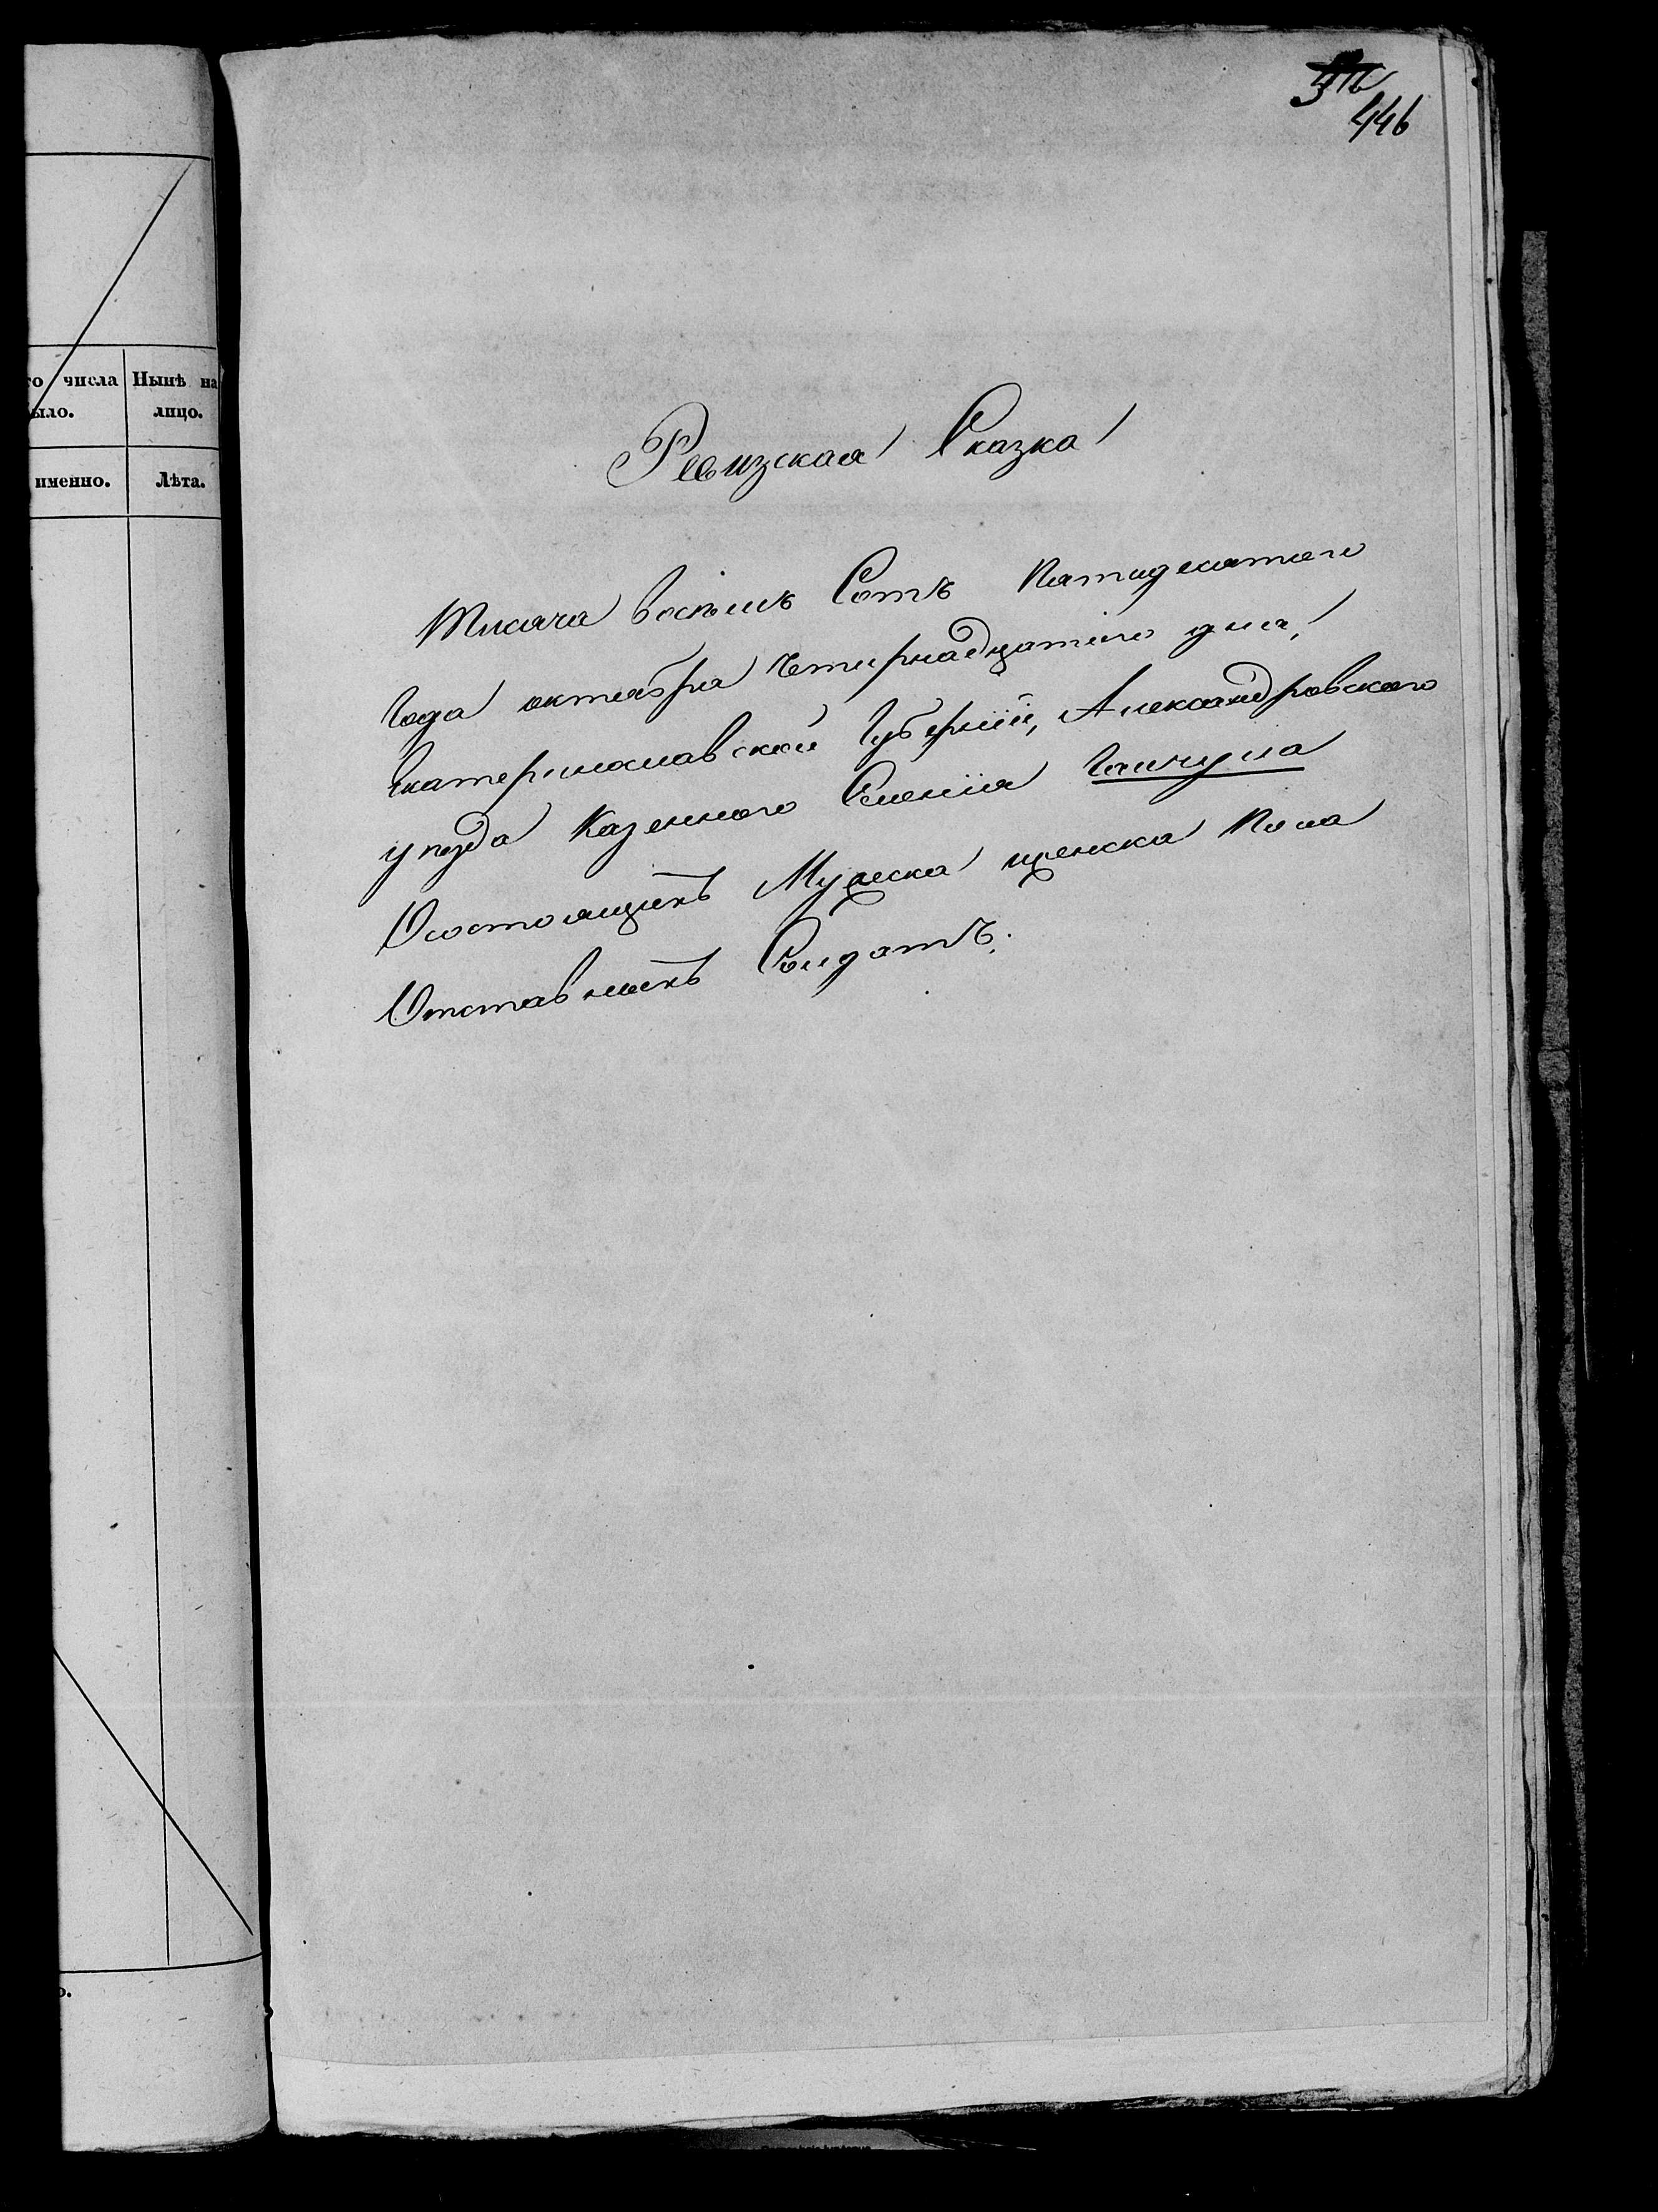 446
го числа
было.
именно.
Нынѣ на
лицо.
Лѣта.
Ревизская Сказка
Тисяча восѣмъ Сотъ Пятидесятого
Года октября Четирнадцятого дня,
Екатеринославской Губерніи, Александровского
уезда Казенного Селенія Гайчула
О состоящихъ Мужеска женска Пола
Отставныхъ Солдатъ.